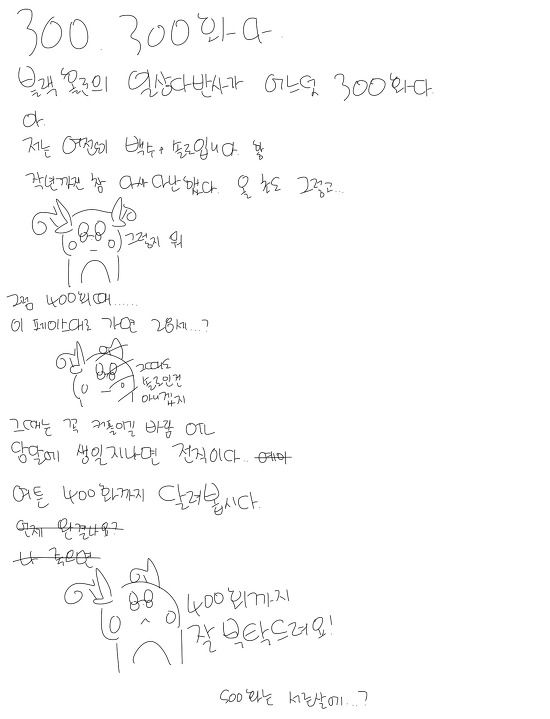 300. 300화다.
블랙 욜로의 일상다반사가 어느덧 300화다
아.
저는 여전히 백수 + 솔로입니다 핳
작년까진 참 다사다난했다. 올 초도 그렇고...
그렇지 뭐
그럼 400화때......
이 페이스대로 가면 28세...?
그때도
솔로인건
아니겠지
그때는 꼭 커플이길 바람
담달에 생일지나면 전직이다.. 예아
여튼 400화까지 달려봅시다.
언제 완결나요?
나 죽으면
400회까지
잘 부탁드려요!
500화는 서른살에...?